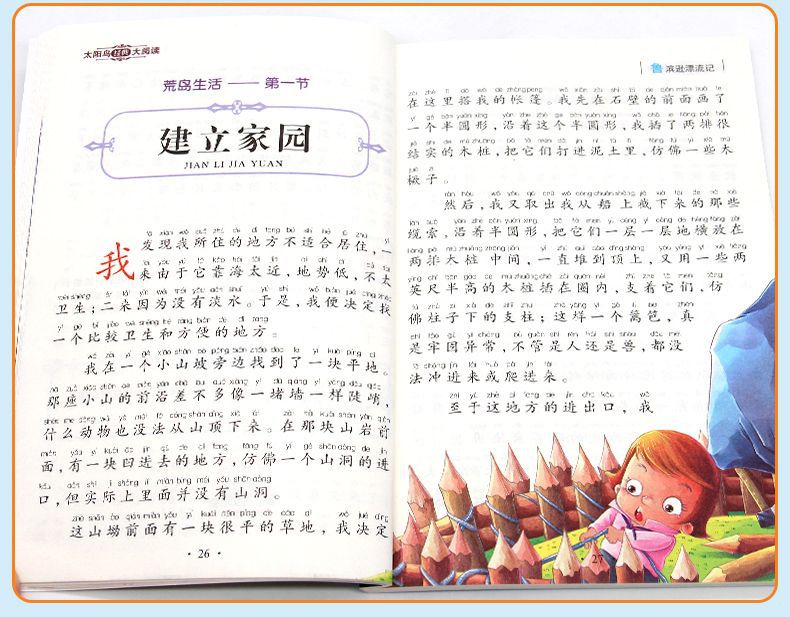 太阳鸟经典大阅读
荒岛生活 —— 第一节
建立家园
JIAN LI JIA YUAN
我 发现我所住的地方不适合居住，一
来由于它靠海太近，地势低，不太
卫生；二来因为没有淡水。于是，我便决定找
一个比较卫生和方便的地方。
我在一个小山坡旁边找到了一块平地。
那座小山的前沿差不多像一堵墙一样陡峭，
什么动物也没法从山顶下来。在那块山岩前
面，有一块凹进去的地方，仿佛一个山洞的进
口，但实际上里面并没有山洞。
这山坳前面有一块很平的草地，我决定
· 26 ·
鲁滨逊漂流记
在这里搭我的帐篷。我先在石壁的前面画了
一个半圆形，沿着这个半圆形，我插了两排很
结实的木桩，把它们打进泥土里，仿佛一些木
橛子。
然后，我又取出我从船上截下来的那些
缆索，沿着半圆形，把它们一层一层地横放在
两排大桩 中间，一直堆到顶上，又用一些两
英尺半高的木桩插在圈内，支着它们，仿
佛柱子下的支柱；这样一个篱笆，真
是牢固异常，不管是人还是兽，都没
法冲进来或爬进来。
至于这地方的进出口，我
27